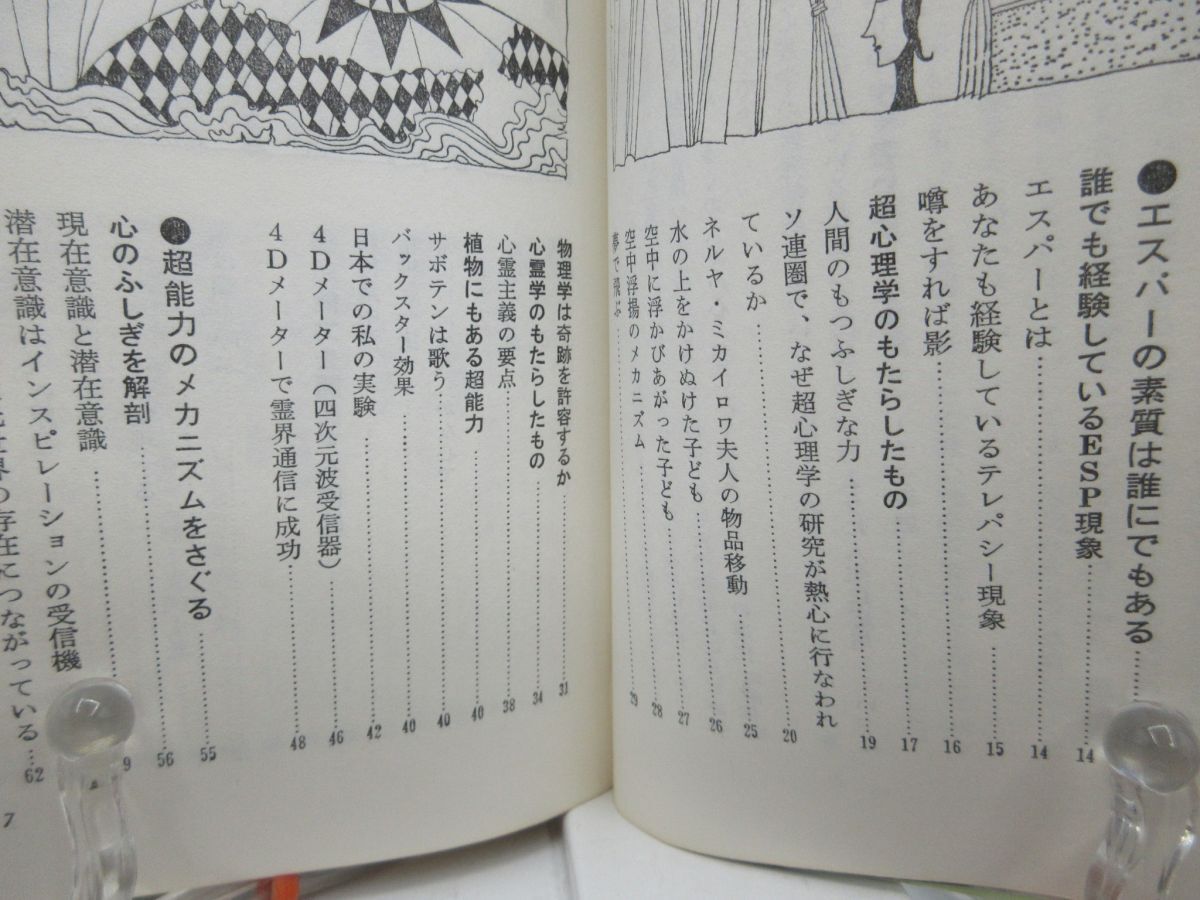 ●エスパーの素質は誰にでもある……
誰でも経験しているESP現象……14
エスパーとは……14
あなたも経験しているテレパシー現象……15
噂をすれば影……16
超心理学のもたらしたもの……17
人間のもっふしぎな力……19
ソ連圏で、なぜ超心理学の研究が熱心に行なわれ……20
ているか……25
ネルヤ・ミカイロワ夫人の物品移動……26
水の上をかけぬけた子ども……27
空中に浮かびあがった子ども……28
空中浮揚のメカニズム……29
夢で飛ぶ……
物理学は奇跡を許容するか……31
心霊学のもたらしたもの……34
心霊主義の要点……38
植物にもある超能力……40
サボテンは歌う……40
バックスター効果……40
日本での私の実験……42
4Dメーター（四次元波受信器）……46
4Dメーターで霊界通信に成功……48
●超能力のメカニズムをさぐる……55
心のふしぎを解剖……56
現在意識と潜在意識……9
潜在意識はインスピレーションの受信機
世界の存在につながっている…62
7